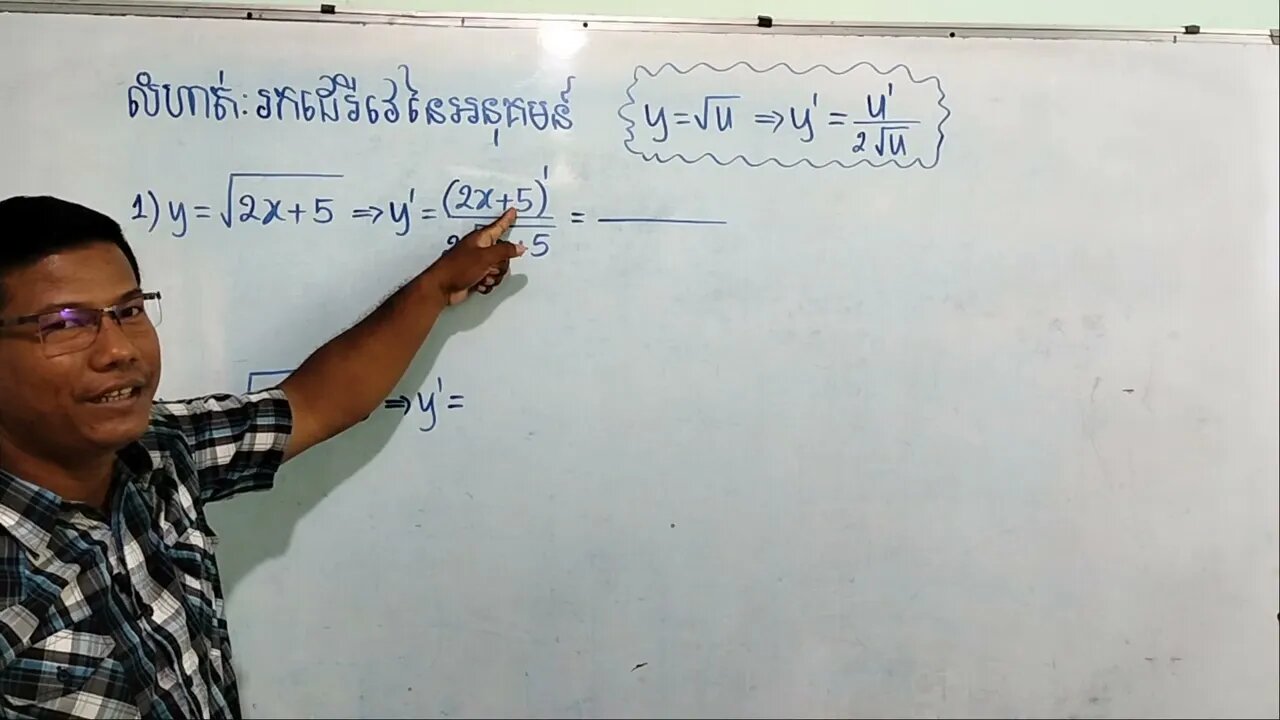 លំហាត់: រកដេរីវេនៃអនុគមន៍
y = √u ⇒ y' = u' / 2√u
1) y = √2x+5 ⇒ y' = (2x+5)' / 2 +5 =
⇒ y' =